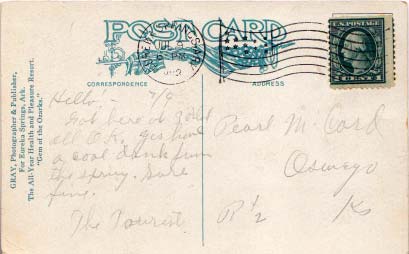 POST CARD
CORRESPONDENCE
ADDRESS
GRAY, Photographer & Publisher,
For Eureka Springs, Ark.
The All-Year Health and Pleasure Resort.
"Gem of the Ozarks."
U.S. POSTAGE
CENT
Hello! - 7/9
Got here at
all O.K. yes have
a cool drink from
the spring. Sure
fine.
The Tourist
Pearl M. Card
Oswego
R#2 Ks